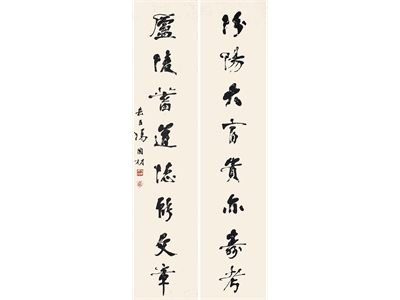 汾陽大富貴亦壽考
廬陵蓄道德能文章
馮國